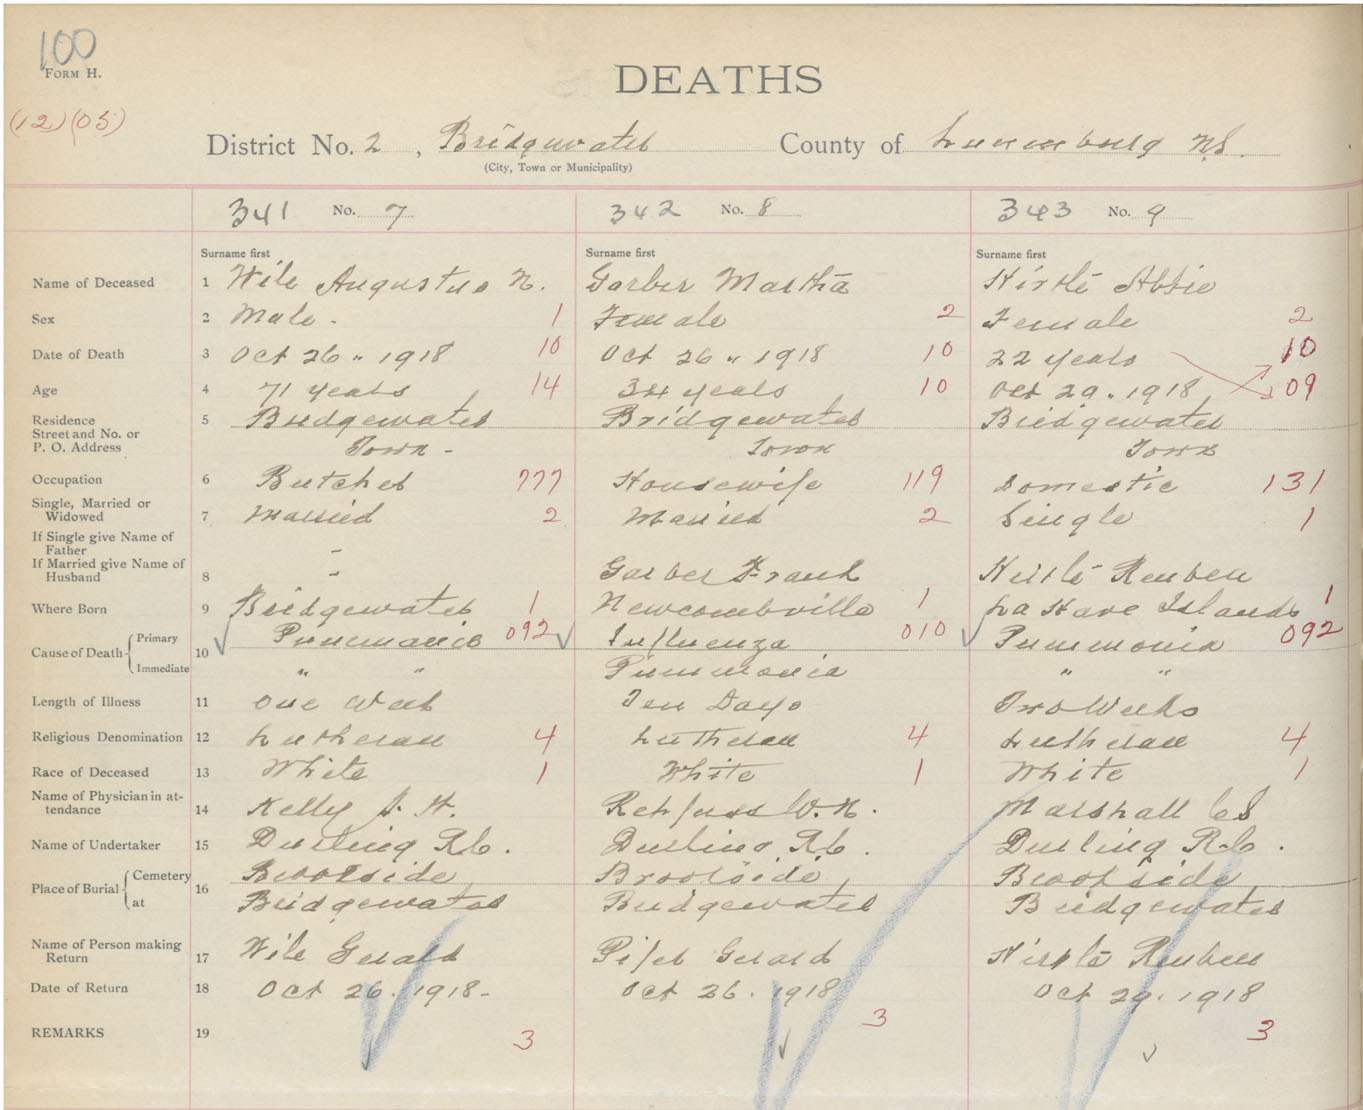 100
FORM H.
DEATHS
(12)(05)
District No. 2, Bridgewater County of Lunenburg N.S.
(City, Town or Municipality)
341 No. 7 342 No. 8 343 No. 9
Surname first Surname first Surname first
Name of Deceased 1 Wile Augustus N. Garber Martha Hirtle Abbie
Sex 2 Male. 1 Female 2 Female 2
Date of Death 3 Oct 26 " 1918 10 Oct 26 " 1918 10 22 years 10
Age 4 71 years 14 34 years 10 Oct 29. 1918 09
Residence 5 Bridgewater Bridgewater Bridgewater
Street and No. or
P. O. Address Town - Town Town
Occupation 6 Butcher 777 Housewife 119 Domestic 131
Single, Married or
Widowed 7 Married 2 Married 2 Single 1
If Single give Name of
Father -
If Married give Name of
Husband 8 - Garber Frank Hirtle Reuben
Where Born 9 Bridgewater 1 Newcombville 1 La Have Islands 1
Cause of Death Primary 10 Pneumonia 092 Influenza 010 Pneumonia 092
Immediate " " Pneumonia " "
Length of Illness 11 One Week Ten Days Two Weeks
Religious Denomination 12 Lutheran 4 Lutheran 4 Lutheran 4
Race of Deceased 13 White 1 White 1 White 1
Name of Physician in at-
tendance 14 Kelly J. H. Rehfuss W. N. Marshall C S
Name of Undertaker 15 Durling R.C. Durling R.C. Durling R.C.
Place of Burial Cemetery 16 Brookside Brookside Brookside
at Bridgewater Bridgewater Bridgewater
Name of Person making
Return 17 Wile Gerald Gerard Hirtle Reuben
Date of Return 18 Oct 26. 1918- Oct 26. 1918 Oct 29. 1918
REMARKS 19 3 3 3